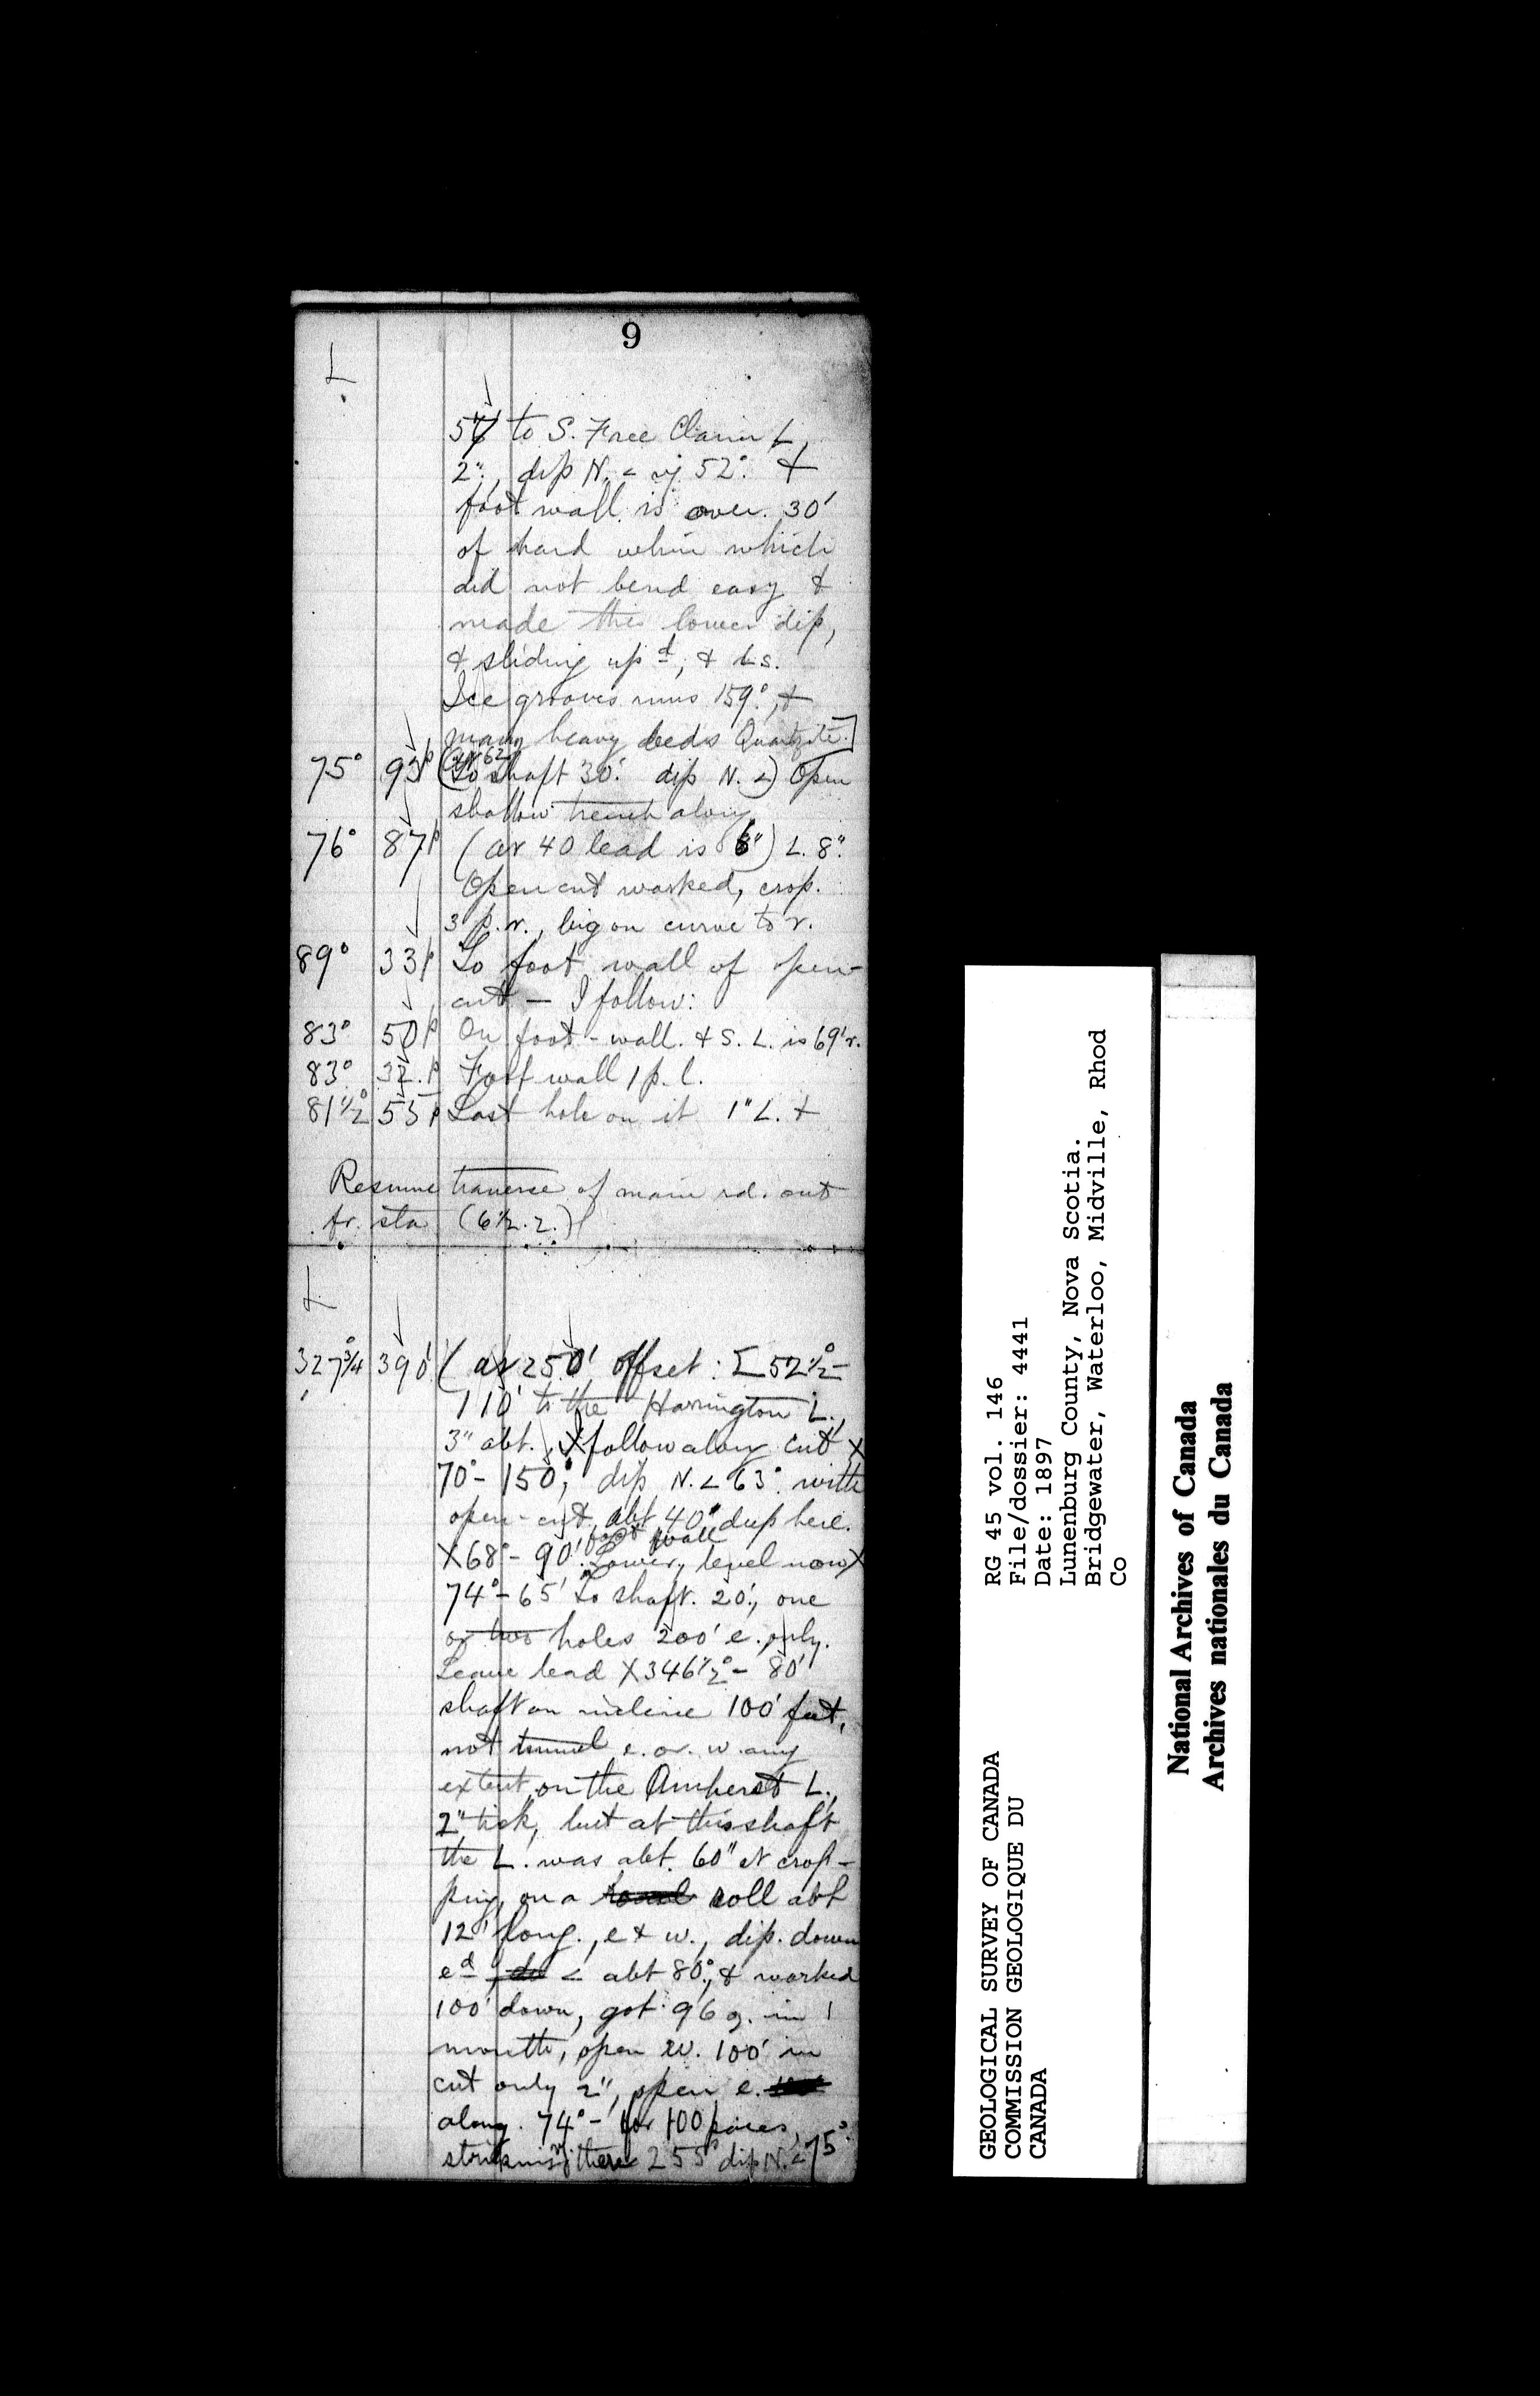 9
L
57' to S. Free Claim L,
2", dip N. < 52°. &
foot wall is over 30'
of hard whin which
did not bend easy &
made this lower dip,
& sliding up d, & Ls.
Ice grooves runs 159°, &
many heavy beds Quartzite.]
75° 93p (at 62 To shaft 30'. dip N. <) Open
shallow trench along
76° 87p (at 40 lead is 6") L. 8".
Open cut worked, crop.
3 p. r., big on curve to r.
89° 33p To foot wall of open-
cut — I follow:
83° 50p On foot-wall. & S. L. is 69' r.
83° 32.p Foot wall 1 p. l.
81½° 55p Last hole on it 1" L. &
Resume traverse of main rd. out
fr. sta (6½.2.)
L
327¾° 390' (at 250' offset: 52½°-
110' to the Harrington L.,
3" abt. X follow along cut X
70°- 150', dip N. < 63°. with
open-cut abt 40" deep here.
foot wall
X68°- 90'. Lower, level now X
74°- 65' To shaft. 20', one
or two holes 200' e. only.
Leave lead X346½°- 80'
shaft on incline 100' feet,
not tunnel e. or. w. any
extent on the Amherst L.,
2" tick, but at this shaft
the L. was abt. 60" at crop-
ping, on a roll abt
12' long., e & w., dip. down
ed < abt 80°, & worked
100' down, got 96 g. in 1
month, open w. 100' in
cut only 2", open e.
along. 74°- for 100 paces,
there 255° dip N. < 75°.
RG 45 vol. 146
File/dossier: 4441
Date: 1897
Lunenburg County, Nova Scotia.
Bridgewater, Waterloo, Midville, Rhod
Co
GEOLOGICAL SURVEY OF CANADA
COMMISSION GEOLOGIQUE DU
CANADA
National Archives of Canada
Archives nationales du Canada